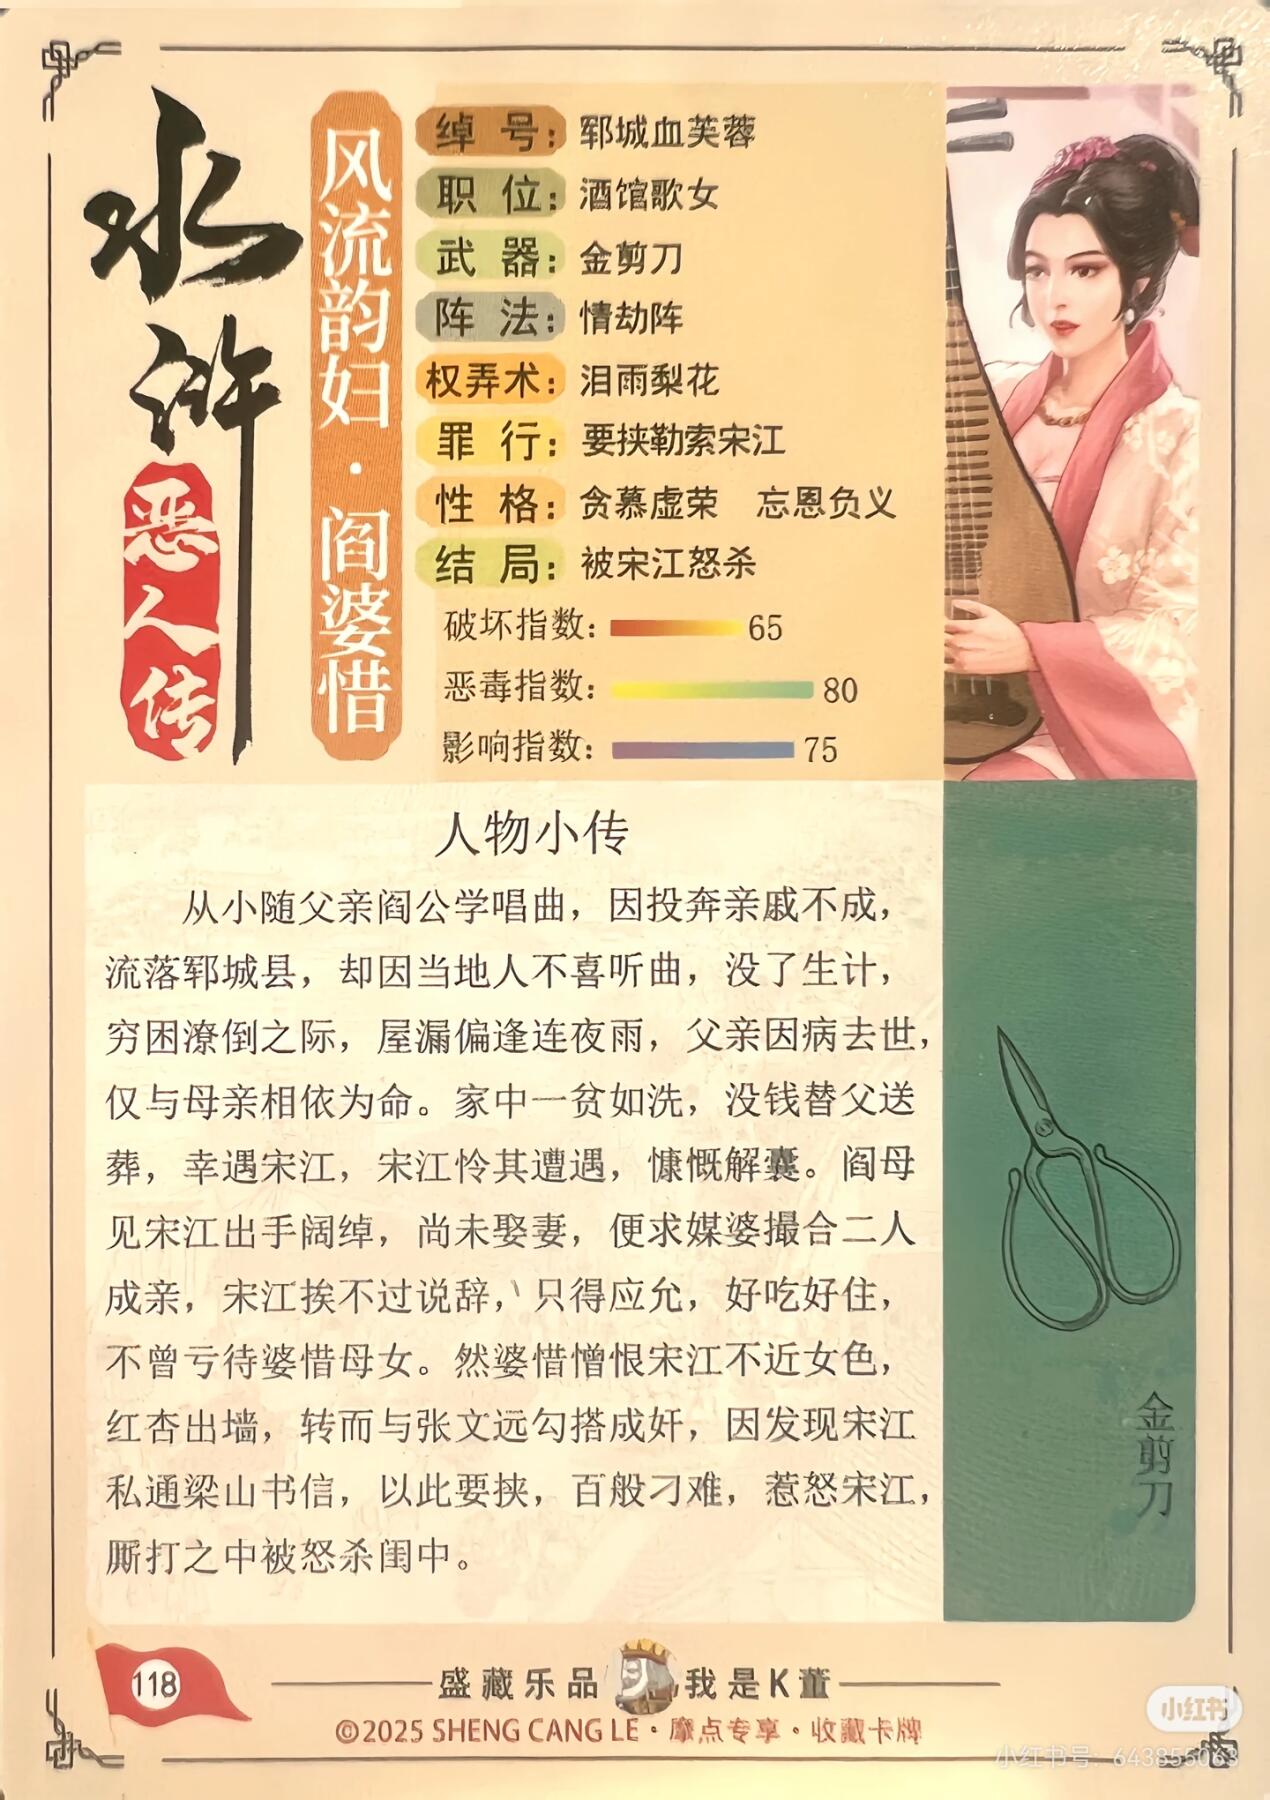 水浒
恶人传
风流韵妇·阎婆惜
绰号：郓城血芙蓉
职位：酒馆歌女
武器：金剪刀
阵法：情劫阵
权弄术：泪雨梨花
罪行：要挟勒索宋江
性格：贪慕虚荣 忘恩负义
结局：被宋江怒杀
破坏指数：65
恶毒指数：80
影响指数：75
人物小传
从小随父亲阎公学唱曲，因投奔亲戚不成，
流落郓城县，却因当地人不喜听曲，没了生计，
穷困潦倒之际，屋漏偏逢连夜雨，父亲因病去世，
仅与母亲相依为命。家中一贫如洗，没钱替父送
葬，幸遇宋江，宋江怜其遭遇，慷慨解囊。阎母
见宋江出手阔绰，尚未娶妻，便求媒婆撮合二人
成亲，宋江挨不过说辞，只得应允，好吃好住，
不曾亏待婆惜母女。然婆惜憎恨宋江不近女色，
红杏出墙，转而与张文远勾搭成奸，因发现宋江
私通梁山书信，以此要挟，百般刁难，惹怒宋江，
厮打之中被怒杀闺中。
金剪刀
118
盛藏乐品 我是K董
©2025 SHENG CANG LE·摩点专享·收藏卡牌
小红书
小红书号：643855063